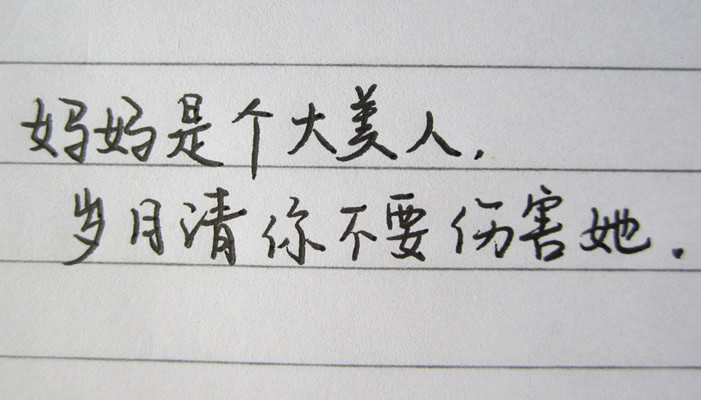 妈妈是个大美人.
岁月清你不要伤害她.